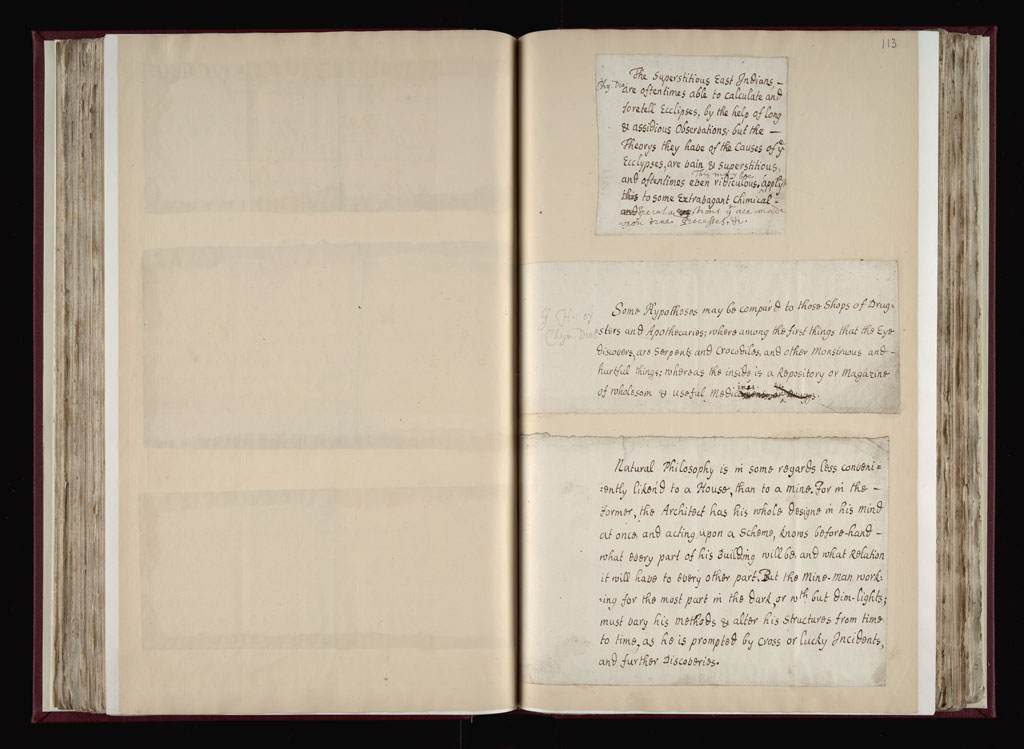 113
The Superstitious East Indians –
Chy. Dia
are oftentimes able to calculate and
foretell Ecclipses, by the help of long
& assidious Observations; but the —
Theorys they have of the Causes of yᵉ
Ecclypses, are vain & superstitious,
and oftentimes even ridiculous. Apply
This may be
this to some Extravagant Chimical –
and
upon rare Processes, &c.
Some Hypotheses may be compar'd to those Shops of Drug=
G H. of
sters and Apothecaries; where among the first things that the Eye
Chym. Dial
discovers, are Serpents and Crocodiles, and other Monstruous and –
hurtful things; whereas the inside is a Repository or Magazine
of wholesom & useful Medicines.
Natural Philosophy is in some regards less conveni=
=ently liken'd to a House, than to a mine. For in the –
former, the Architect has his whole designe in his mind
at once, and acting upon a Scheme, knows before-hand –
what every part of his Building will be, and what Relation
it will have to every other part. But the Mine-man work-
-ing for the most part in the Dark, or wᵗʰ but dim-lights;
must vary his Methods & alter his Structures from time
to time, as he is prompted by cross or lucky Incidents,
and further Discoveries.